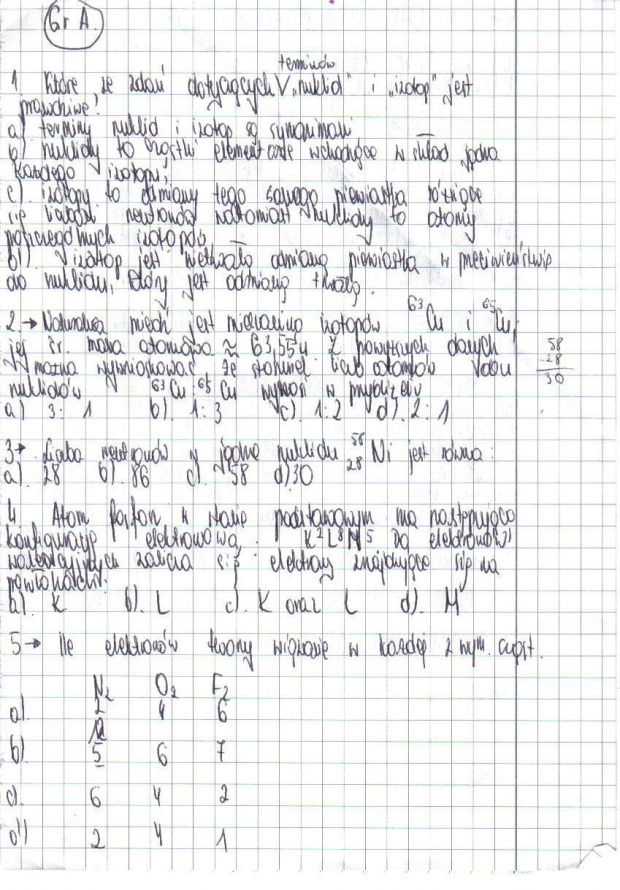 Gr A.
terminów
1. Które ze zdań dotyczących V "nuklid" i "izotop" jest
prawdziwe?
a) terminy nuklid i izotop są synonimami
b) nuklidy to cząstki elementarne wchodzące w skład jądra
każdego izotopu;
c). izotopy to odmiany tego samego pierwiastka różniące
się liczbą neutronów natomiast nuklidy to atomy
poszczególnych izotopów
d). izotop jest nietrwałą odmianą pierwiastka w przeciwieństwie
do nuklidu, który jest odmianą trwałą.
2. → Naturalna miedź jest mieszaniną izotopów ⁶³Cu i ⁶⁵Cu,
jej śr. masa atomowa ≈ 63,55u Z powyższych danych
można wywnioskować że stosunek liczb atomów obu
nuklidów ⁶³Cu : ⁶⁵Cu wynosi w przybliżeniu
a) 3 : 1 b). 1 : 3 c). 1:2 d). 2:1
58
28
30
3 → Liczba neutronów w jądrze nuklidu ⁵⁸₂₈Ni jest równa :
a). 28 b). 86 c). 58 d) 30
4 Atom fosforu w stanie podstawowym ma następującą
konfigurację elektronową : K²L⁸M⁵ Do elektronów
walencyjnych zalicza się elektrony znajdujące się na
powłokach:
a). K b). L c). K oraz L d). M
5 → Ile elektronów tworzy wiązanie w każdej z wym. cząst.
N₂ O₂ F₂
a). 2 4 6
b). 5 6 7
c). 6 4 2
d) 2 4 1